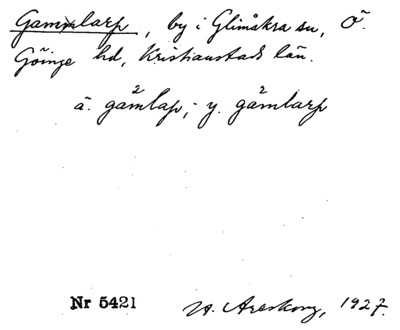 Gamlarp, by i Glimåkra sn, Ö.
Göinge hd, Kristianstads län.
ä. gämlap; y. gämlarp
Nr 5421
H. Areskog, 1927.